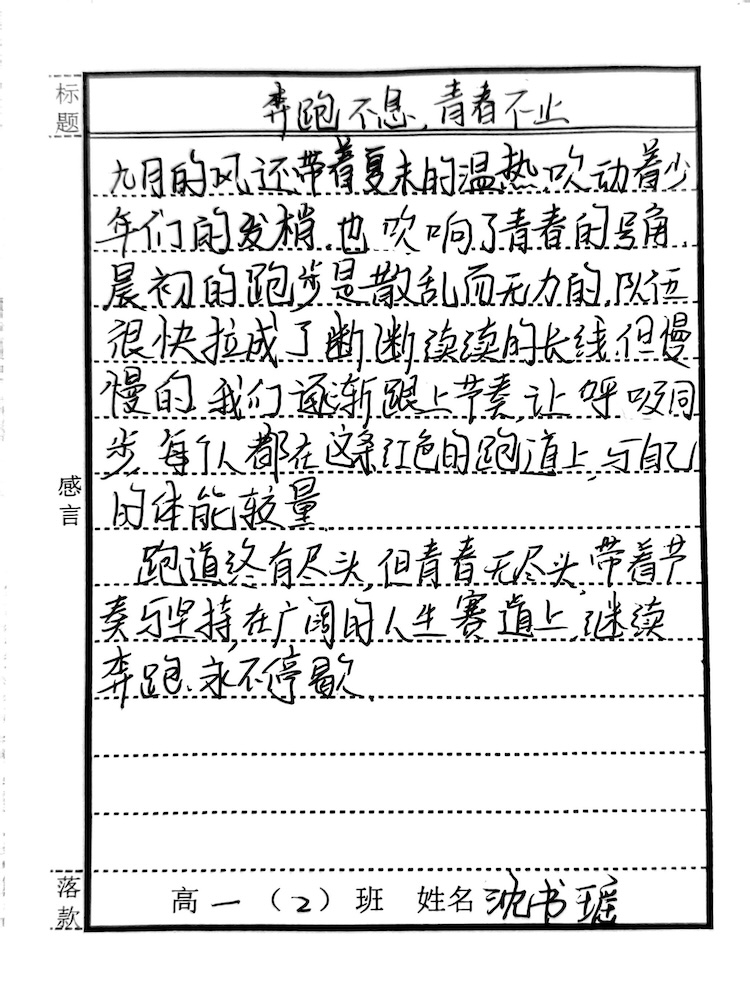 标题
奔跑不息,青春不止
九月的风还带着夏末的温热,吹动着少
年们的发梢,也吹响了青春的号角,
晨初的跑步是散乱而无力的,队伍
很快拉成了断断续续的长线,但慢
慢的,我们逐渐跟上节奏,让呼吸同
步,每个人都在这条红色的跑道上,与自己
的体能较量.
跑道终有尽头,但青春无尽头,带着节
奏与坚持,在广阔的人生赛道上,继续
奔跑,永不停歇.
感言
落款
高一(2)班 姓名 沈书